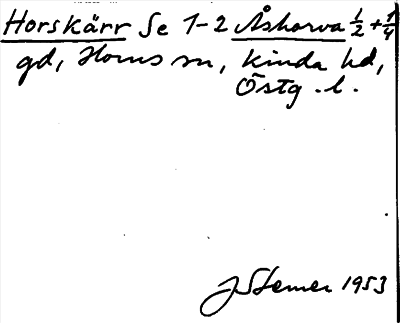 Horskärr Se 1-2 Åshorva 1/2 + 1/4
gd, Horns sn, Kinda hd,
Östg. l.
J Stemer 1953